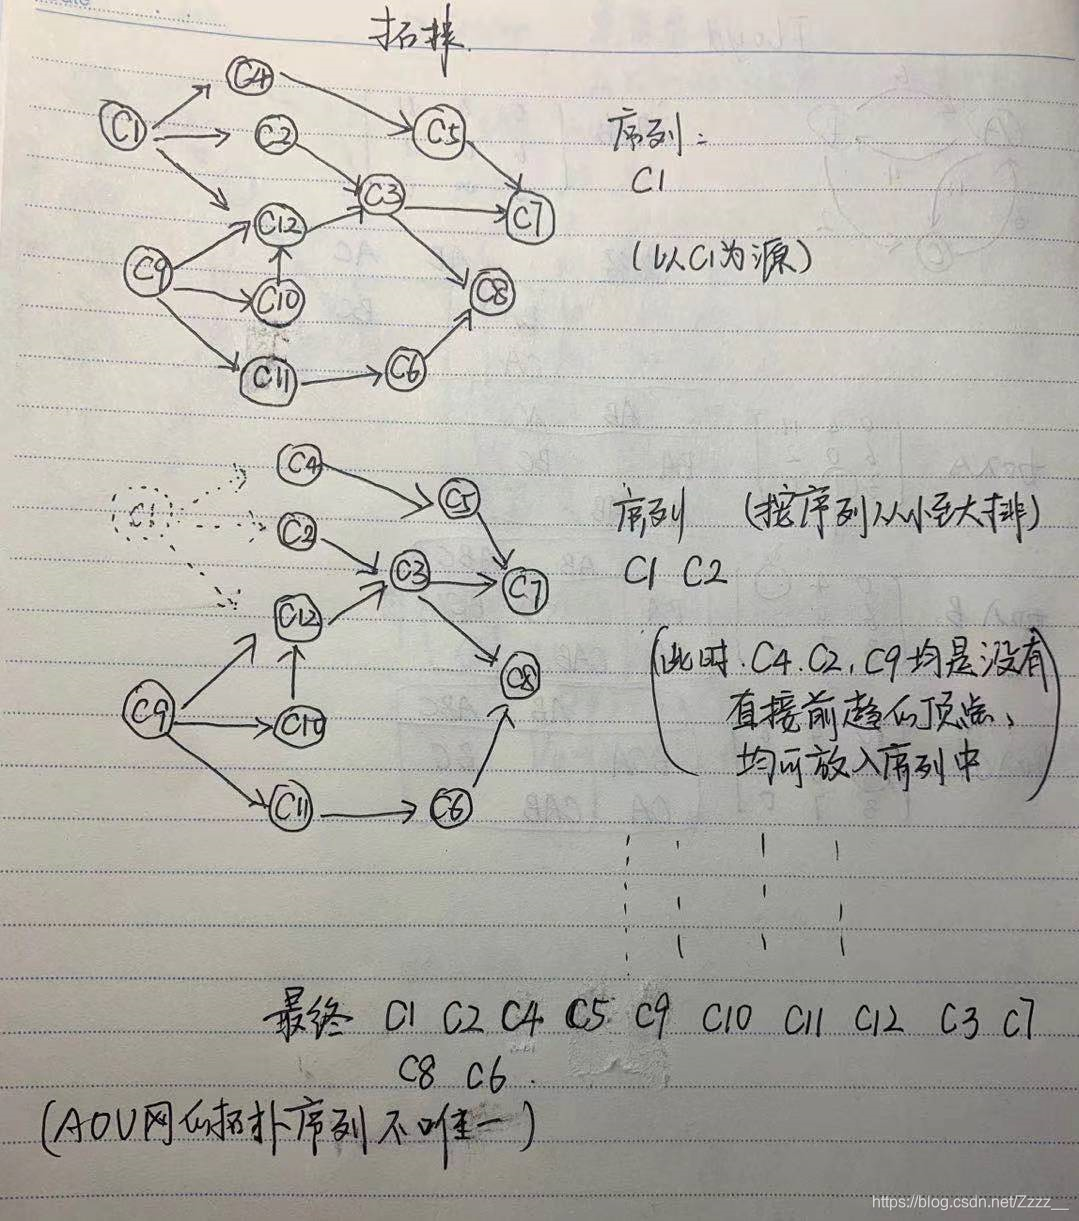 拓排.
C4
C1
C2
C5
C3
C12
C7
C9
C10
C8
C11
C6
序列:
C1
(以C1为源)
C1
C4
C2
C5
C3
C12
C7
C8
C9
C10
C11
C6
序列 (按序列从小至大排)
C1 C2
(此时.C4.C2.C9均是没有
直接前趋的顶点,
均可放入序列中)
最终 C1 C2 C4 C5 C9 C10 C11 C12 C3 C7
C8 C6.
(AOV网的拓扑序列不唯一)
https://blog.csdn.net/Zzzz__